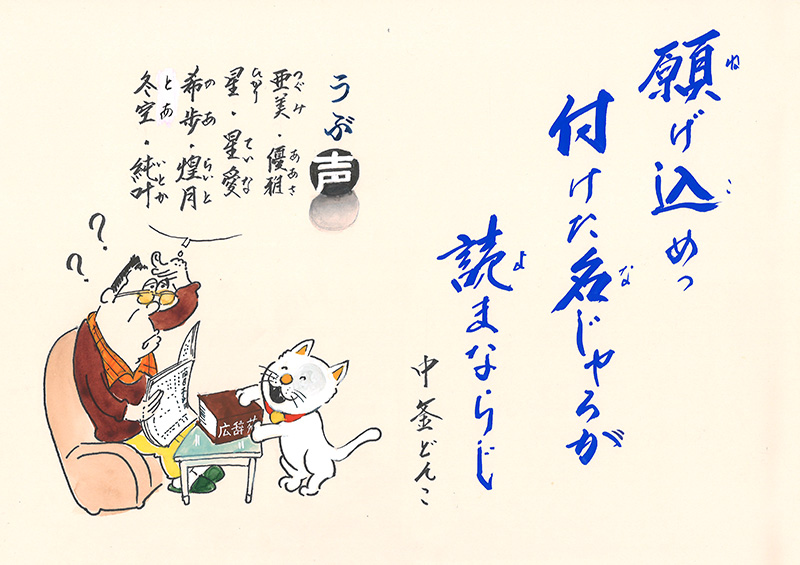 願げ込めっ
ね こ
付けた名じゃろが
な
読まならじ
よ
中釜どんこ
うぶ声
亜美・優雅
つぐみ ああさ
星・星愛
ひかり てぃな
希歩・煌月
のあ らいと
冬空・純叶
とあ いとか
? ?
広辞苑